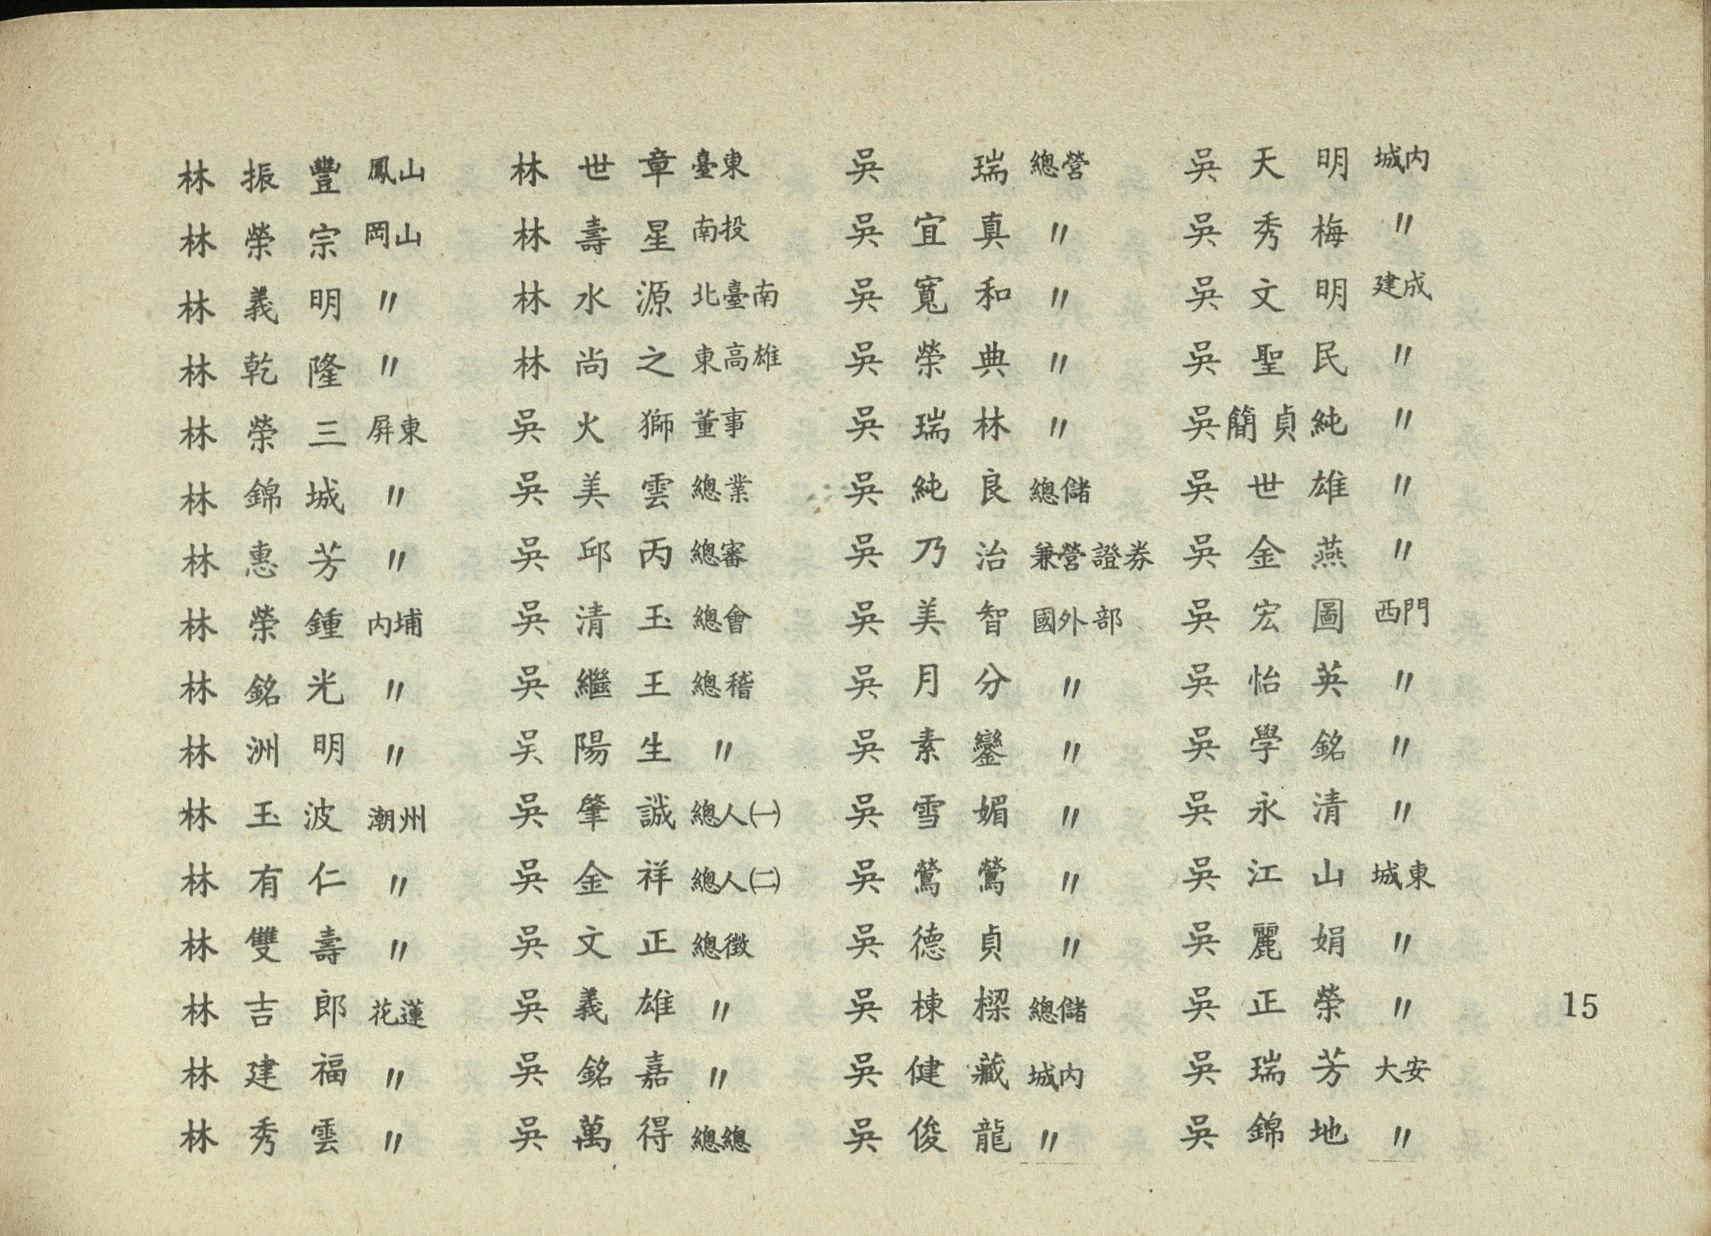 林振豐 鳳山
林榮宗 岡山
林義明 〃
林乾隆 〃
林榮三 屏東
林錦城 〃
林惠芳 〃
林榮鍾 內埔
林銘光 〃
林洲明 〃
林玉波 潮州
林有仁 〃
林雙壽 〃
林吉郎 花蓮
林建福 〃
林秀雲 〃
林世章 臺東
林壽星 南投
林水源 北臺南
林尚之 東高雄
吳火獅 董事
吳美雲 總業
吳邱丙 總審
吳清玉 總會
吳繼王 總稽
吳陽生 〃
吳肇誠 總人㈠
吳金祥 總人㈡
吳文正 總徵
吳義雄 〃
吳銘嘉 〃
吳萬得 總總
吳瑞 總營
吳宜真 〃
吳寬和 〃
吳榮典 〃
吳瑞林 〃
吳純良 總儲
吳乃治 兼營證券
吳美智 國外部
吳月分 〃
吳素鑾 〃
吳雪媚 〃
吳鶯鶯 〃
吳德貞 〃
吳棟樑 總儲
吳健藏 城內
吳俊龍 〃
吳天明 城內
吳秀梅 〃
吳文明 建成
吳聖民 〃
吳簡貞純 〃
吳世雄 〃
吳金燕 〃
吳宏圖 西門
吳怡英 〃
吳學銘 〃
吳永清 〃
吳江山 城東
吳麗娟 〃
吳正榮 〃
吳瑞芳 大安
吳錦地 〃
15